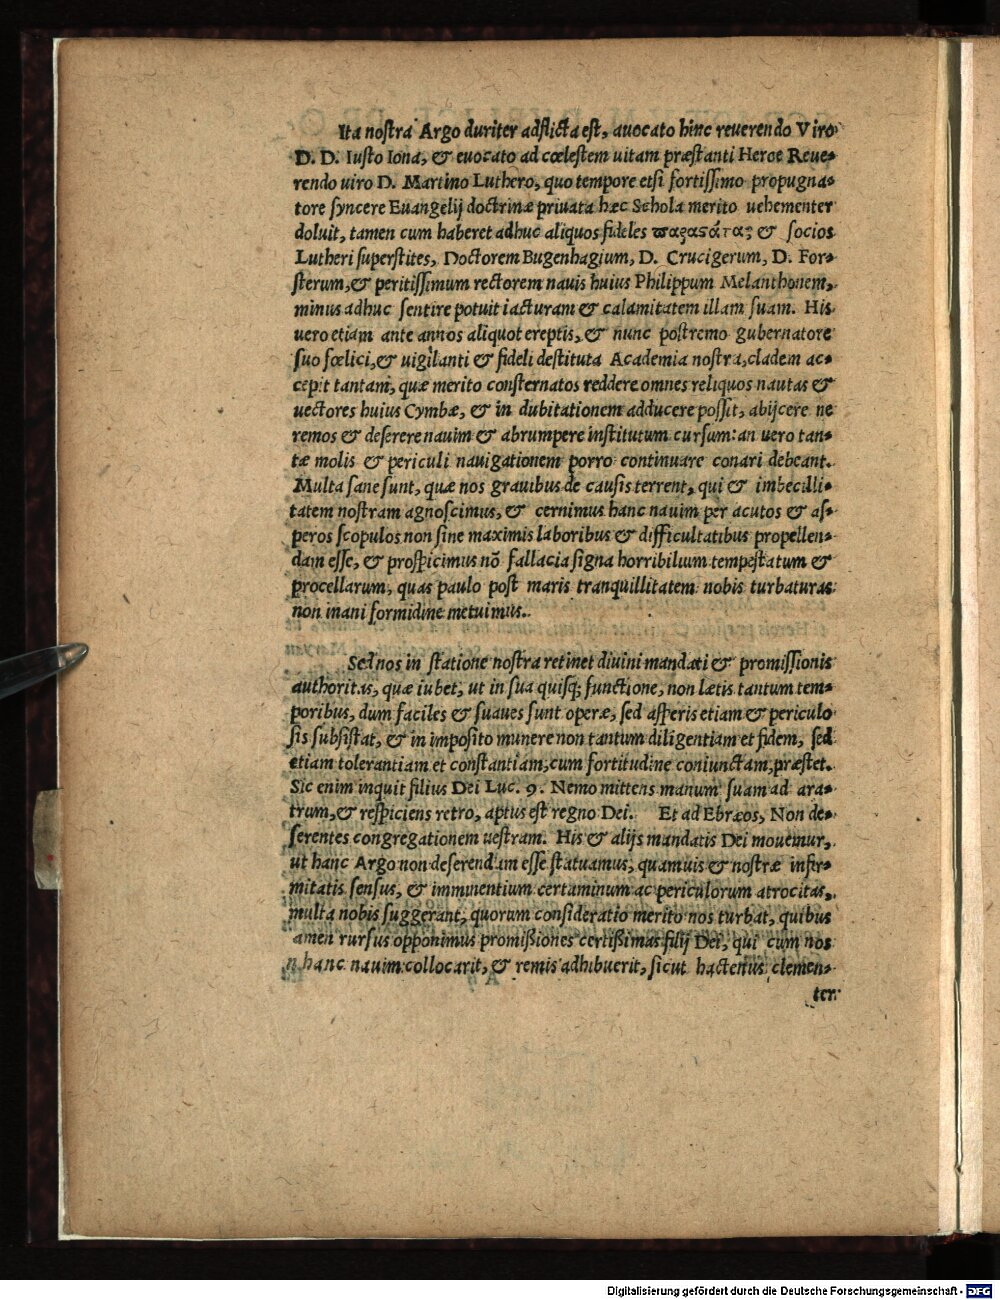 Ita nostra Argo duriter adflicta est, auocato hinc reuerendo Viro
D. D. Iusto Iona, & euocato ad cœlestem uitam præstanti Heroe Reue-
rendo uiro D. Martino Luthero, quo tempore etsi fortissimo propugna-
tore syncere Euangelij doctrinæ priuata hæc Schola merito uehementer
doluit, tamen cum haberet adhuc aliquos fideles παραστάτας & socios
Lutheri superstites, Doctorem Bugenhagium, D. Crucigerum, D. For-
sterum, & peritissimum rectorem nauis huius Philippum Melanthonem,
minus adhuc sentire potuit iacturam & calamitatem illam suam. His
uero etiam ante annos aliquot ereptis, & nunc postremo gubernatore
suo fœlici, & uigilanti & fideli destituta Academia nostra, cladem ac-
cepit tantam, quæ merito consternatos reddere omnes reliquos nautas &
uectores huius Cymbæ, & in dubitationem adducere possit, abijcere ne
remos & deserere nauim & abrumpere institutum cursum: an uero tan-
tæ molis & periculi nauigationem porro continuare conari debeant.
Multa sane sunt, quæ nos grauibus de causis terrent, qui & imbecilli-
tatem nostram agnoscimus, & cernimus hanc nauim per acutos & as-
peros scopulos non sine maximis laboribus & difficultatibus propellen-
dam esse, & prospicimus nõ fallacia signa horribilium tempestatum &
procellarum, quas paulo post maris tranquillitatem nobis turbaturas
non inani formidine metuimus.
Sed nos in statione nostra retinet diuini mandati & promissionis
authoritas, quæ iubet, ut in sua quisq; functione, non lætis tantum tem-
poribus, dum faciles & suaues sunt operæ, sed asperis etiam & periculo
sis subsistat, & in imposito munere non tantum diligentiam et fidem, sed
etiam tolerantiam et constantiam, cum fortitudine coniunctam, præstet.
Sic enim inquit filius Dei Luc. 9. Nemo mittens manum suam ad ara-
trum, & respiciens retro, aptus est regno Dei. Et ad Ebræos, Non de-
serentes congregationem uestram. His & alijs mandatis Dei mouemur,
ut hanc Argo non deserendam esse statuamus, quamuis & nostræ infir-
mitatis sensus, & imminentium certaminum ac periculorum atrocitas,
multa nobis suggerant, quorum consideratio merito nos turbat, quibus
amen rursus opponimus promißiones certißimas filij Dei, qui cum nos
n hanc nauim collocarit, & remis adhibuerit, sicut hactenus clemen-
ter
Digitalisierung gefördert durch die Deutsche Forschungsgemeinschaft - DFG